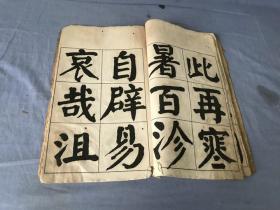 此再寒
暑百沴
自辟易
哀哉沮